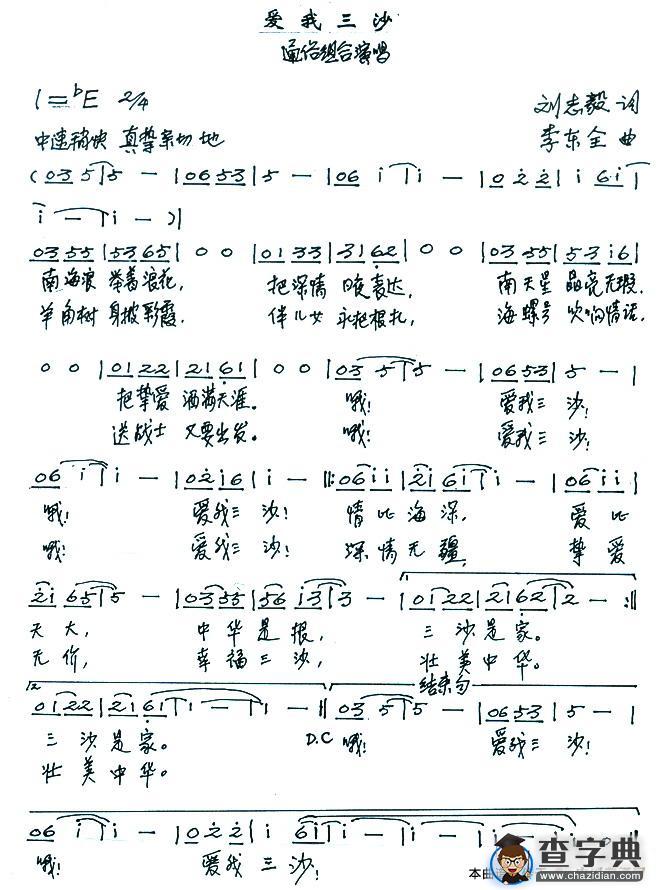 爱我三沙
通俗组合演唱
1=bE 2/4
刘志毅 词
中速稍快 真挚亲切地
李东全 曲
(03 5|5 — |0653|5 — |06 i|i — |0 2 2|i 6i|
i — |i — )|
0355|5365|0 0|0133|3162|0 0|0355|53i6|
南海浪 举着浪花, 把深情 表达, 南天星 晶亮无瑕.
羊角树 身披彩霞, 伴儿女 永把根扎, 海螺号 吹响情话,
0 0|0122|2161|0 0|03 5|5 — |0653|5 — |
把挚爱 洒满天涯。 哦! 爱我三 沙!
送战士 又要出发。 哦! 爱我三 沙!
06 i|i — |02i6|i — |:06ii|2i6i|i — |06ii|
哦! 爱我三 沙! 情比海深, 爱比
哦! 爱我三 沙! 深情无疆, 挚爱
2i 65|5 — |0355|56 i3|3 — |0122|2162|2 — :|
天大, 中华是根, 三沙是家。
无价, 幸福三沙, 壮美中华。
结束句
0122|2161|1 — |1 — |03 5|5 — |0653|5 — |
三沙是家。 D.C 哦! 爱我三 沙!
壮美中华。
06 i|i — |0 2 2|i 6i|i — |i — |i — |i 0|
哦! 爱我三 沙!
本曲
查字典
www.chazidian.com